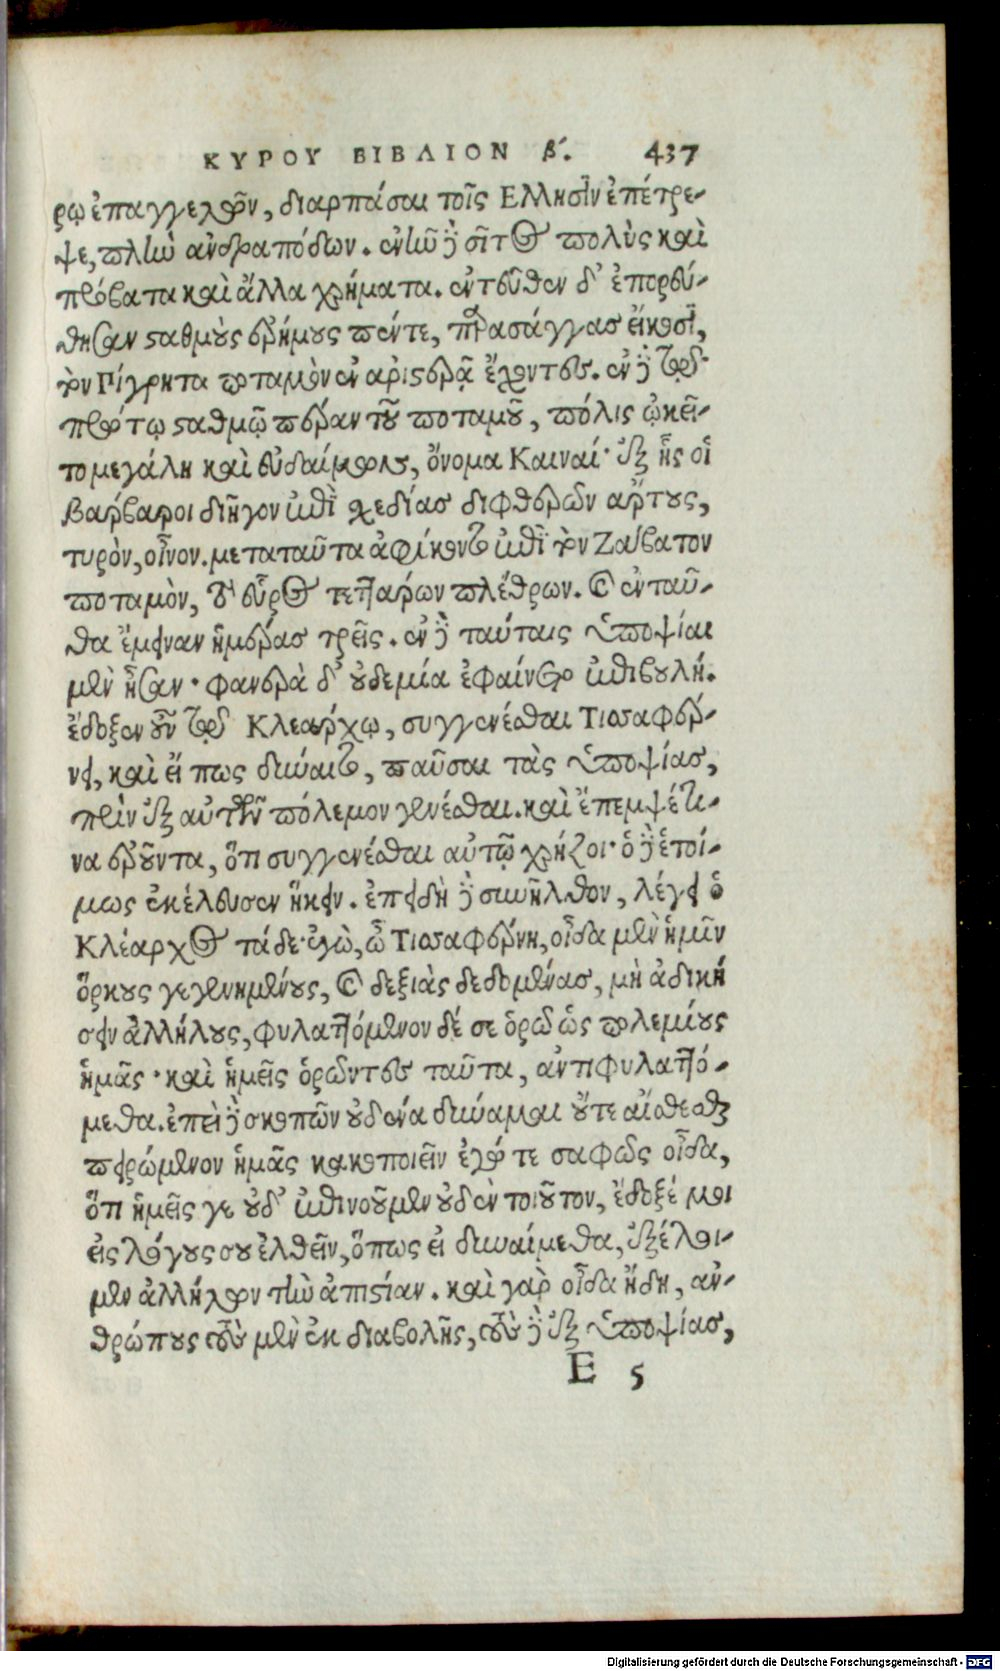 ΚΥΡΟΥ ΒΙΒΛΙΟΝ β΄. 437
ρῳ ἐπαγγελῶν, διαρπάσαι τοῖς Ελλησιν ἐπέτρε-
ψε, πλὴν ἀνδραπόδων. ἐνῆν δὲ σῖτος πολὺς καὶ
πρόβατα καὶ ἄλλα χρήματα. ἐντεῦθεν δ' ἐπορεύ-
θησαν σταθμοὺς ἐρήμους πέντε, παρασάγγας εἴκοσι,
τὸν Γίγρητα ποταμὸν ἐν ἀριστερᾷ ἔχοντες. ἐν δὲ τῷ
πρώτῳ σταθμῷ πέραν τοῦ ποταμοῦ, πόλις ᾠκεῖ-
το μεγάλη καὶ εὐδαίμων, ὄνομα Καιναί· ἐξ ἧς οἱ
βάρβαροι διῆγον ἐπὶ σχεδίας διφθερῶν ἄρτους,
τυρὸν, οἶνον. μετὰ ταῦτα ἀφίκοντο ἐπὶ τὸν Ζάβατον
ποταμὸν, τὸ εὖρος τεττάρων πλέθρων. καὶ ἐνταῦ-
θα ἔμειναν ἡμέρας τρεῖς. ἐν δὲ ταύταις ὑποψίαι
μὲν ἦσαν· φανερὰ δ' οὐδεμία ἐφαίνετο ἐπιβουλή.
ἔδοξεν οὖν τῷ Κλεάρχῳ, συγγενέσθαι Τισσαφέρ-
νει, καὶ εἴ πως δύναιτο, παῦσαι τὰς ὑποψίας,
πρὶν ἐξ αὐτῶν πόλεμον γενέσθαι. καὶ ἔπεμψέ τι-
να ἐροῦντα, ὅτι συγγενέσθαι αὐτῷ χρήζοι· ὁ δὲ ἑτοί-
μως ἐκέλευσεν ἥκειν. ἐπειδὴ δὲ συνῆλθον, λέγει ὁ
Κλέαρχος τάδε· ἐγὼ, ὦ Τισσαφέρνη, οἶδα μὲν ἡμῖν
ὅρκους γεγενημένους, καὶ δεξιὰς δεδομένας, μὴ ἀδική
σειν ἀλλήλους, φυλαττόμενον δέ σε ὁρῶ ὡς πολεμίους
ἡμᾶς· καὶ ἡμεῖς ὁρῶντες ταῦτα, ἀντιφυλαττό-
μεθα. ἐπεὶ δὲ σκοπῶν οὐδένα δύναμαι οὔτε αἴσθεσθαι
πειρώμενον ἡμᾶς κακοποιεῖν ἐγώ τε σαφῶς οἶδα,
ὅτι ἡμεῖς γε οὐδ' ἐπινοοῦμεν οὐδὲν τοιοῦτον, ἔδοξέ μοι
εἰς λόγους σου ἐλθεῖν, ὅπως εἰ δυναίμεθα, ἐξέλοι-
μεν ἀλλήλων τὴν ἀπιστίαν. καὶ γὰρ οἶδα ἤδη, ἀν-
θρώπους τοὺς μὲν ἐκ διαβολῆς, τοὺς δὲ ἐξ ὑποψίας,
E 5
Digitalisierung gefördert durch die Deutsche Forschungsgemeinschaft - DFG